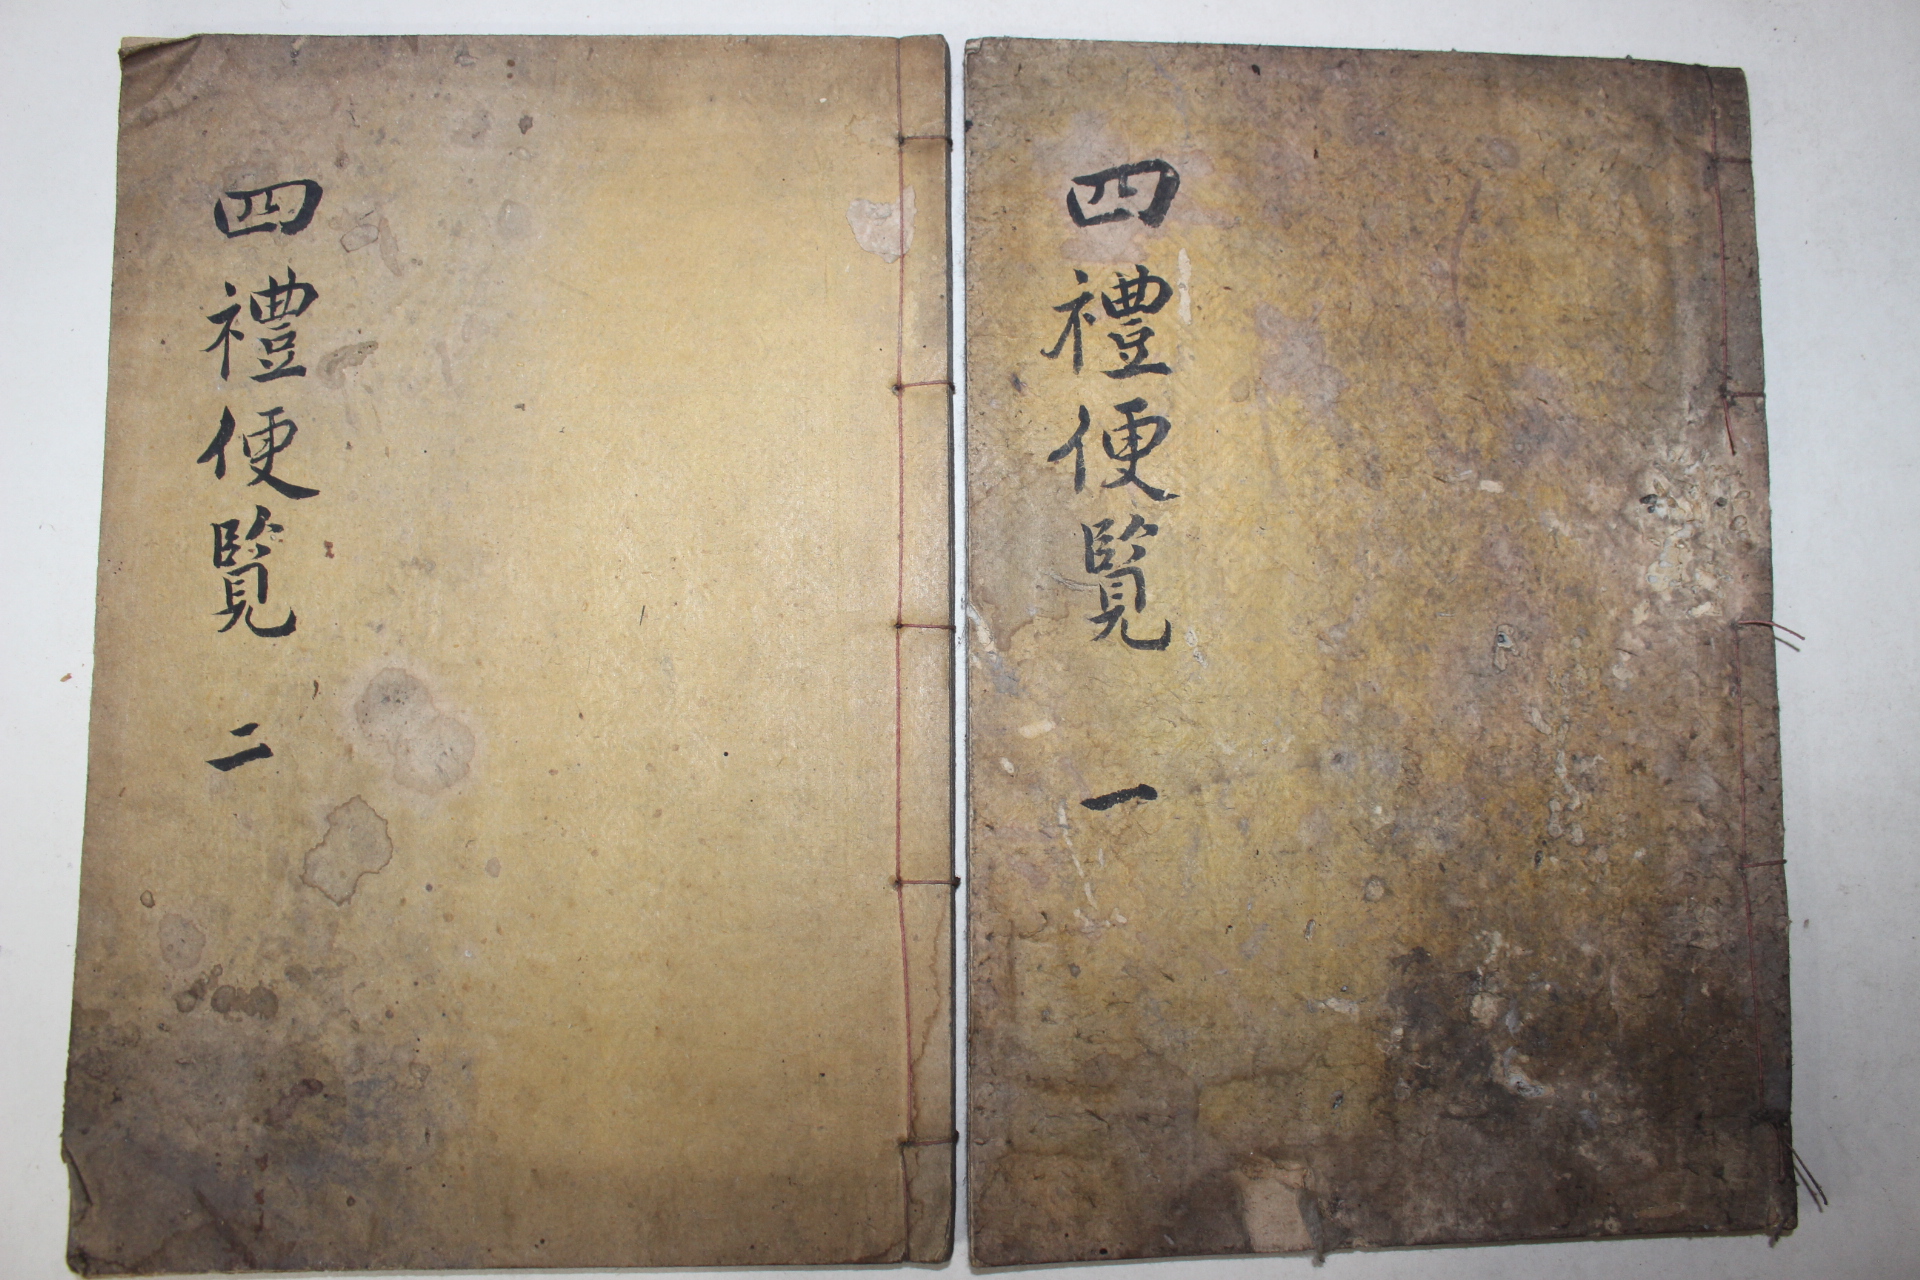 四禮便覽 一
四禮便覽 二